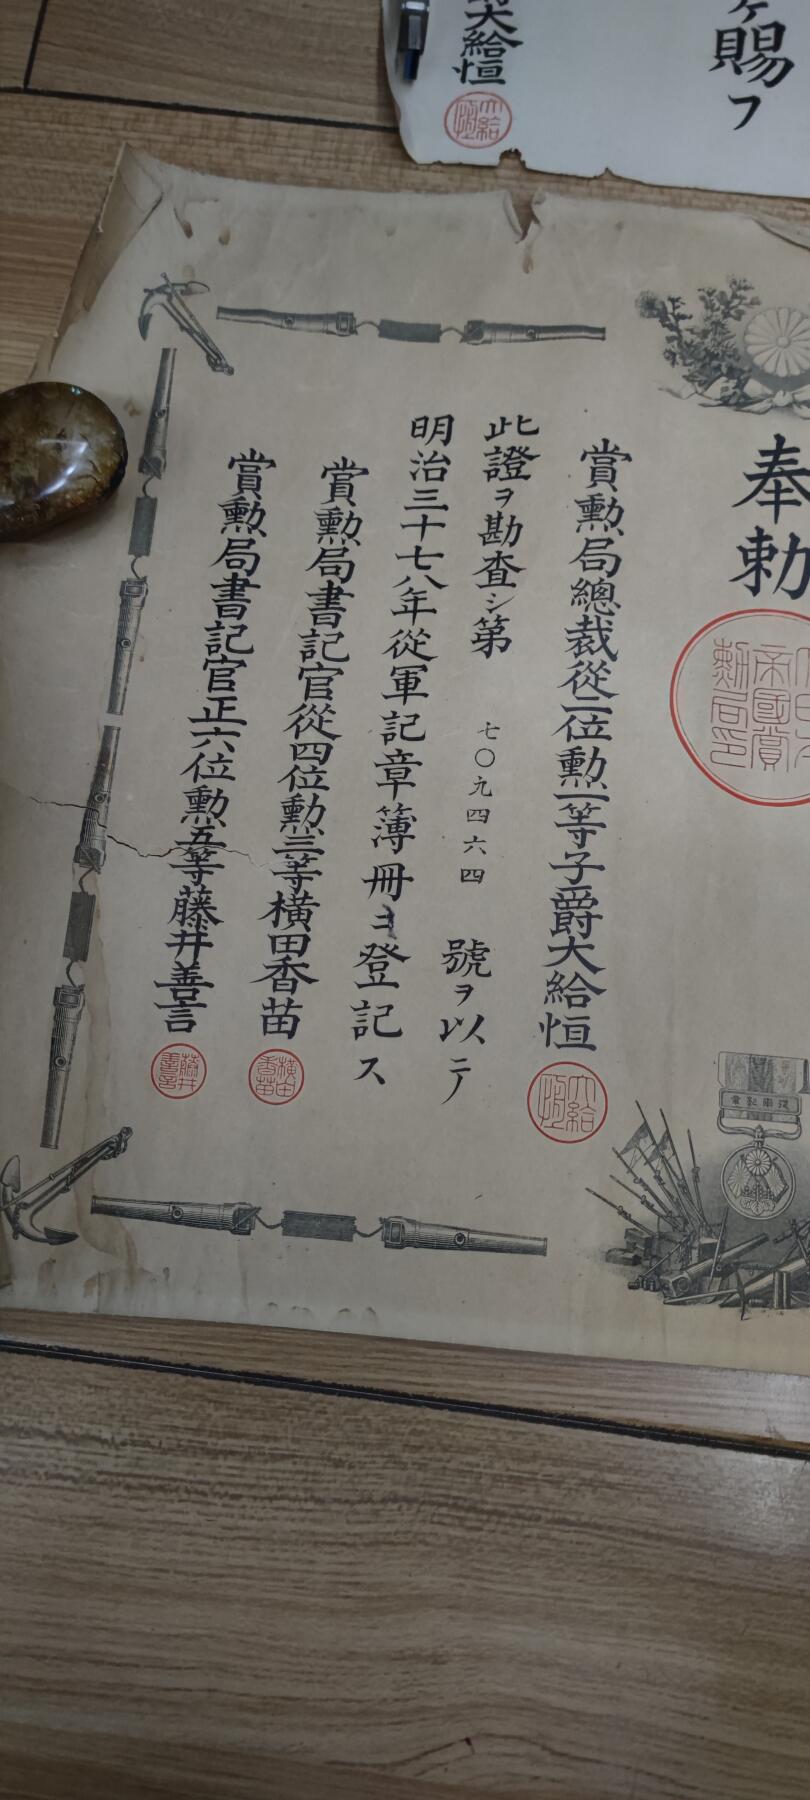 賜フ
大給恒
大給恒
奉勅
賞勲局總裁從二位勲一等子爵大給恒
大給恒
此證ヲ勘査シ第七〇九四六四號ヲ以テ
明治三十七八年從軍記章簿冊ニ登記ス
賞勲局書記官從四位勲三等横田香苗
横田香苗
賞勲局書記官正六位勲五等藤井善言
藤井善言
從軍記章